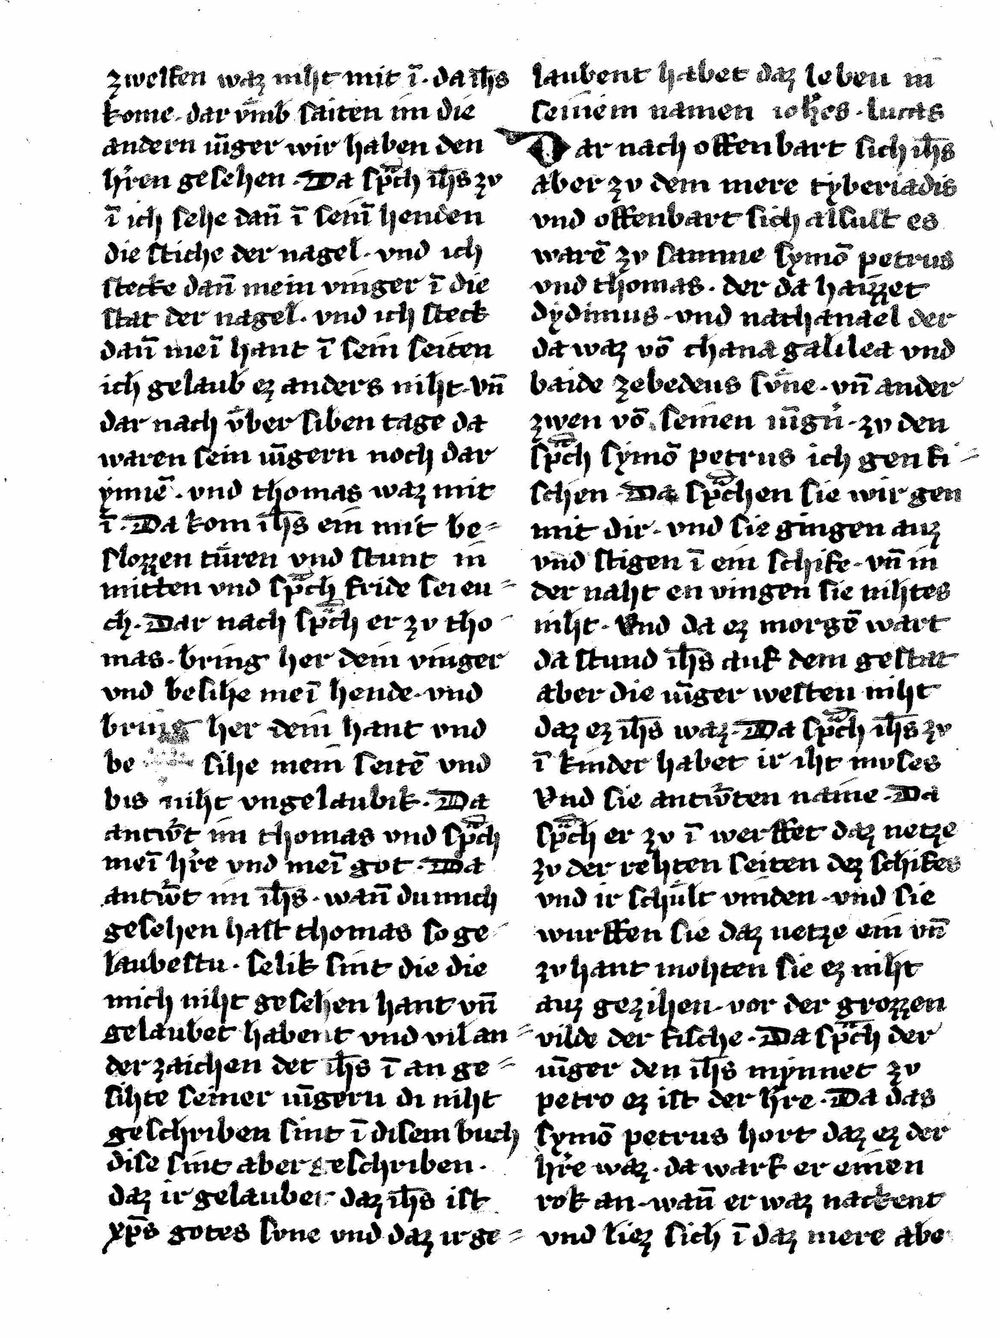 zwelfen waz niht mit ī · da ih̄s
kome · dar vͤmb saiten im die
andern iūger wir haben den
hr̄ren gesehen · Da sp̄ch ih̄s zv
ī ich sehe dan̄ ī sein̄ henden
die stiche der nagel · vnd ich
stecke dan̄ mein vinger ī die
stat der nagel · vnd ich steck
dan̄ meī hant ī sein seiten
ich gelaub ez anders niht · vn̄
dar nach vͤber siben tage da
waren sein iūgern noch dar
ynnē · vnd thomas waz mit
ī · Da kom ih̄s ein mit be⸗
slozzen tuͤren vnd stunt in
mitten vnd sp̄ch fride sei eu⸗
ch · Dar nach sp̄ch er zv tho⸗
mas · bring her dein vinger
vnd besihe meī hende · vnd
bring her dein hant vnd
be sihe mein seitē vnd
bis niht vngelaubik · Da
antwͦt im thomas vnd sp̄ch
meī hr̄e vnd meī got · Da
antwͦt im ih̄s · wan̄ du mich
gesehen hast thomas so ge⸗
laubestu · selik sint die die
mich niht gesehen hant vn̄
gelaubet habent vnd vil an⸗
der zaichen det ih̄s ī an ge⸗
sihte seiner iūgern di niht
geschriben sint ī disem buch
dise sint aber geschriben ·
daz ir gelaubet daz ih̄s ist
xp̄s gotes svne vnd daz ir ge⸗
laubent habet daz leben in
seinem namen ioh̄es · lucas
Dar nach offenbart sich ih̄s
aber zv dem mere tyberiadis
vnd offenbart sich alsust es
warē zv samme symō petrus
vnd thomas · der da haizzet
dydimus · vnd nathanael der
da waz vō chana galilea vnd
baide zebedeus svͤne · vn̄ ander
zwen vō seinen iūgn̄ · zv den
sp̄ch symō petrus ich gen fi⸗
schen · Da sp̄chen sie wir gen
mit dir · vnd sie gingen auz
vnd stigen ī ein schife · vn̄ in
der naht en vingen sie nihtes
niht · Vnd da ez morgē wart
da stund ih̄s auf dem gestat
aber die iūger westen niht
daz ez ih̄s waz · Da sp̄ch ih̄s zv
ī kinder habet ir iht mvses
Vnd sie antwͦten naine · Da
sp̄ch er zv ī werffet daz netze
zv der rehten seiten dez schifes
vnd ir schuͤlt vinden · vnd sie
wurffen sie daz netze ein vn̄
zv hant mohten sie ez niht
auz gezihen · vor der grozzen
vilde der fische · Da sp̄ch der
iūger den ih̄s mynnet zv
petro ez ist der hr̄e · Da das
symō petrus hort daz ez der
hr̄e waz · da warf er einen
rok an · wan̄ er waz nackent
vnd liez sich ī daz mere abe